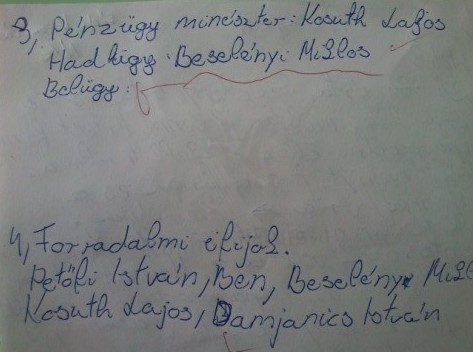 3, Pénzügy minészter: Kosuth Lajos
Hadügy: Beselényi Miklos
Belügy:
4, Forradalmi ifijak.
Petőfi István, Ben, Beselényi Mikl
Kosuth Lajos, Damjanics István